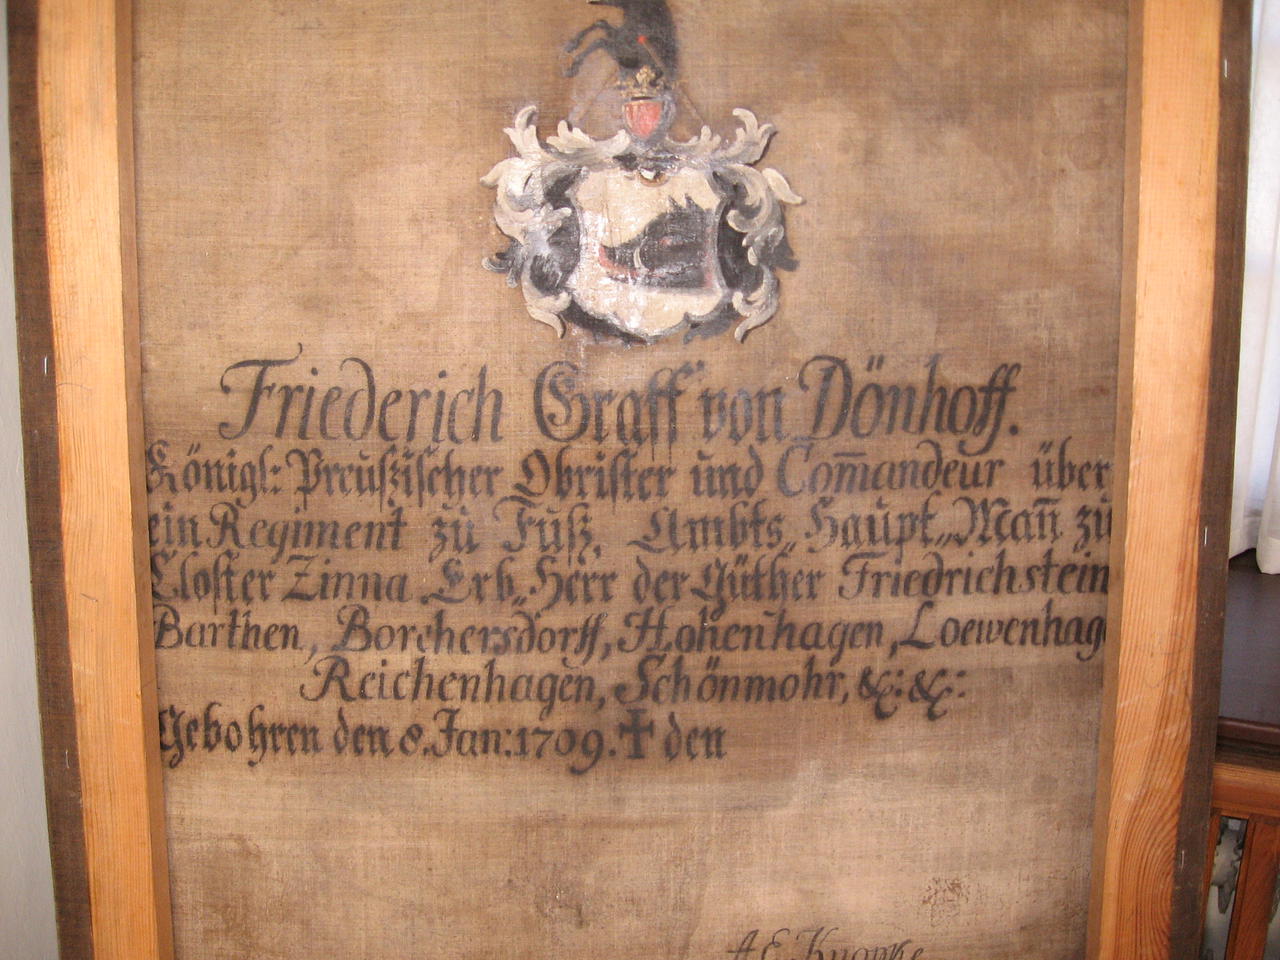 Friederich Graff von Dönhoff.
Königl: Preuſziſcher Obriſter und Com̄andeur über
ein Regiment zu Fuſz, Ambts„ Haupt„Man̄ zu
Cloſter Zinna. Erb„Herr der Güther Friedrichstein
Barthen, Borchersdorff, Hohenhagen, Loewenhag
Reichenhagen, Schönmohr, &c: &c:
Gebohren den 8. Jan: 1709. ✝ den
A E Knopke